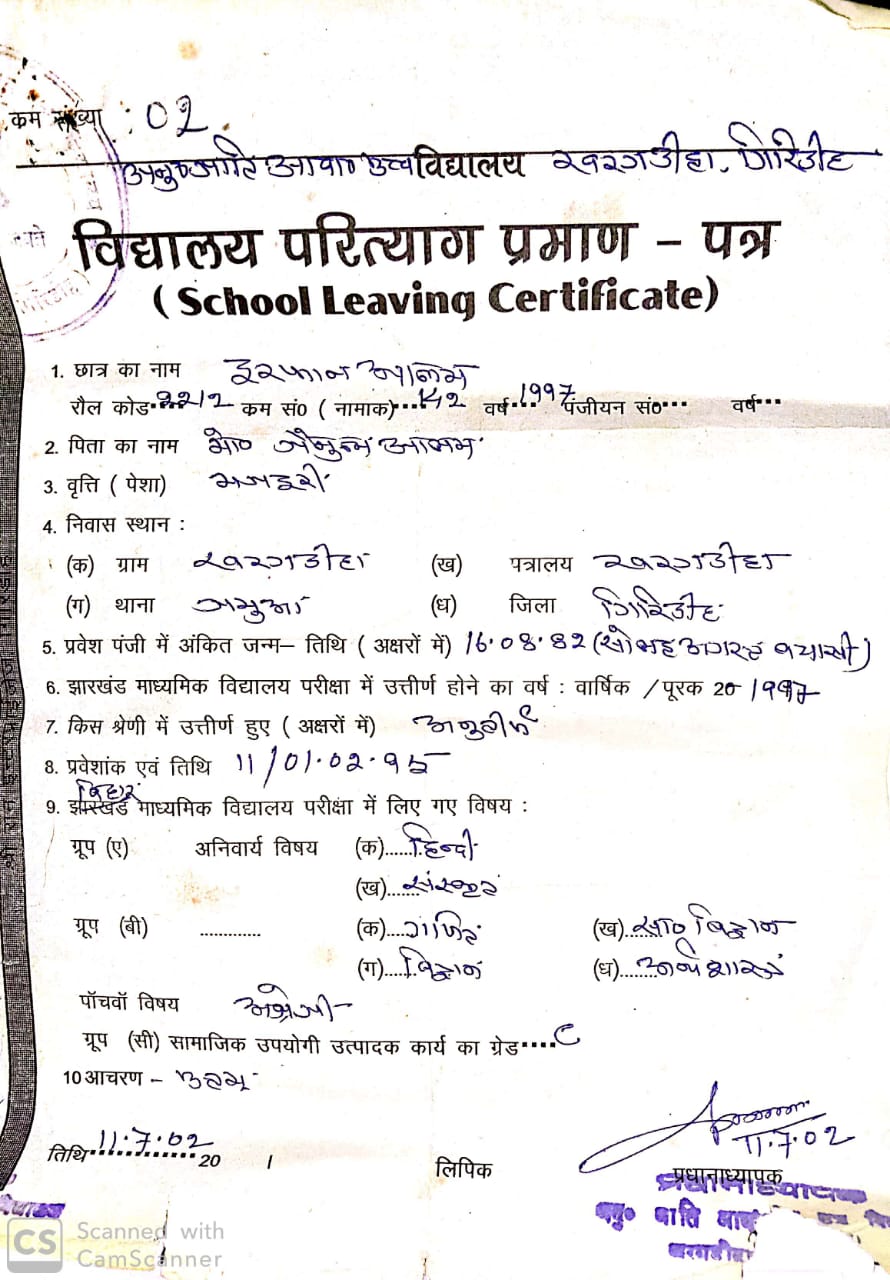 कम संख्या : 02
विद्यालय खरगडीहा, गिरिडीह
विद्यालय परित्याग प्रमाण - पत्र
( School Leaving Certificate)
1. छात्र का नाम इरफान आलम
रौल कोड 2212 कम सं० ( नामाक) 142 वर्ष 1997 पंजीयन सं० वर्ष
2. पिता का नाम मो० आलम
3. वृत्ति ( पेशा) मजदूरी
4. निवास स्थान :
(क) ग्राम खरगडीहा (ख) पत्रालय खरगडीहा
(ग) थाना जमुआ (ध) जिला गिरिडीह
5. प्रवेश पंजी में अंकित जन्म– तिथि ( अक्षरों में) 16.08.82 (सोलह अगस्त बयासी)
6. झारखंड माध्यमिक विद्यालय परीक्षा में उत्तीर्ण होने का वर्ष : वार्षिक / पूरक 20 1997
7. किस श्रेणी में उत्तीर्ण हुए ( अक्षरों में) अनुत्तीर्ण
8. प्रवेशांक एवं तिथि 11/01.02.95
बिहार
9. झारखंड माध्यमिक विद्यालय परीक्षा में लिए गए विषय :
ग्रूप (ए) अनिवार्य विषय (क)......हिन्दी
(ख)......संस्कृत
ग्रूप (बी) ............ (क)....गणित (ख)......सा० विज्ञान
(ग)....विज्ञान (ध)........अर्थशास्त्र
पॉचवॉ विषय अंग्रेजी
ग्रूप (सी) सामाजिक उपयोगी उत्पादक कार्य का ग्रेड....C
10 आचरण – उत्तम
11.7.02
तिथि 20 लिपिक प्रधानाध्यापक
प्रधानाध्यापक
अनु० जाति
CS Scanned with
CamScanner